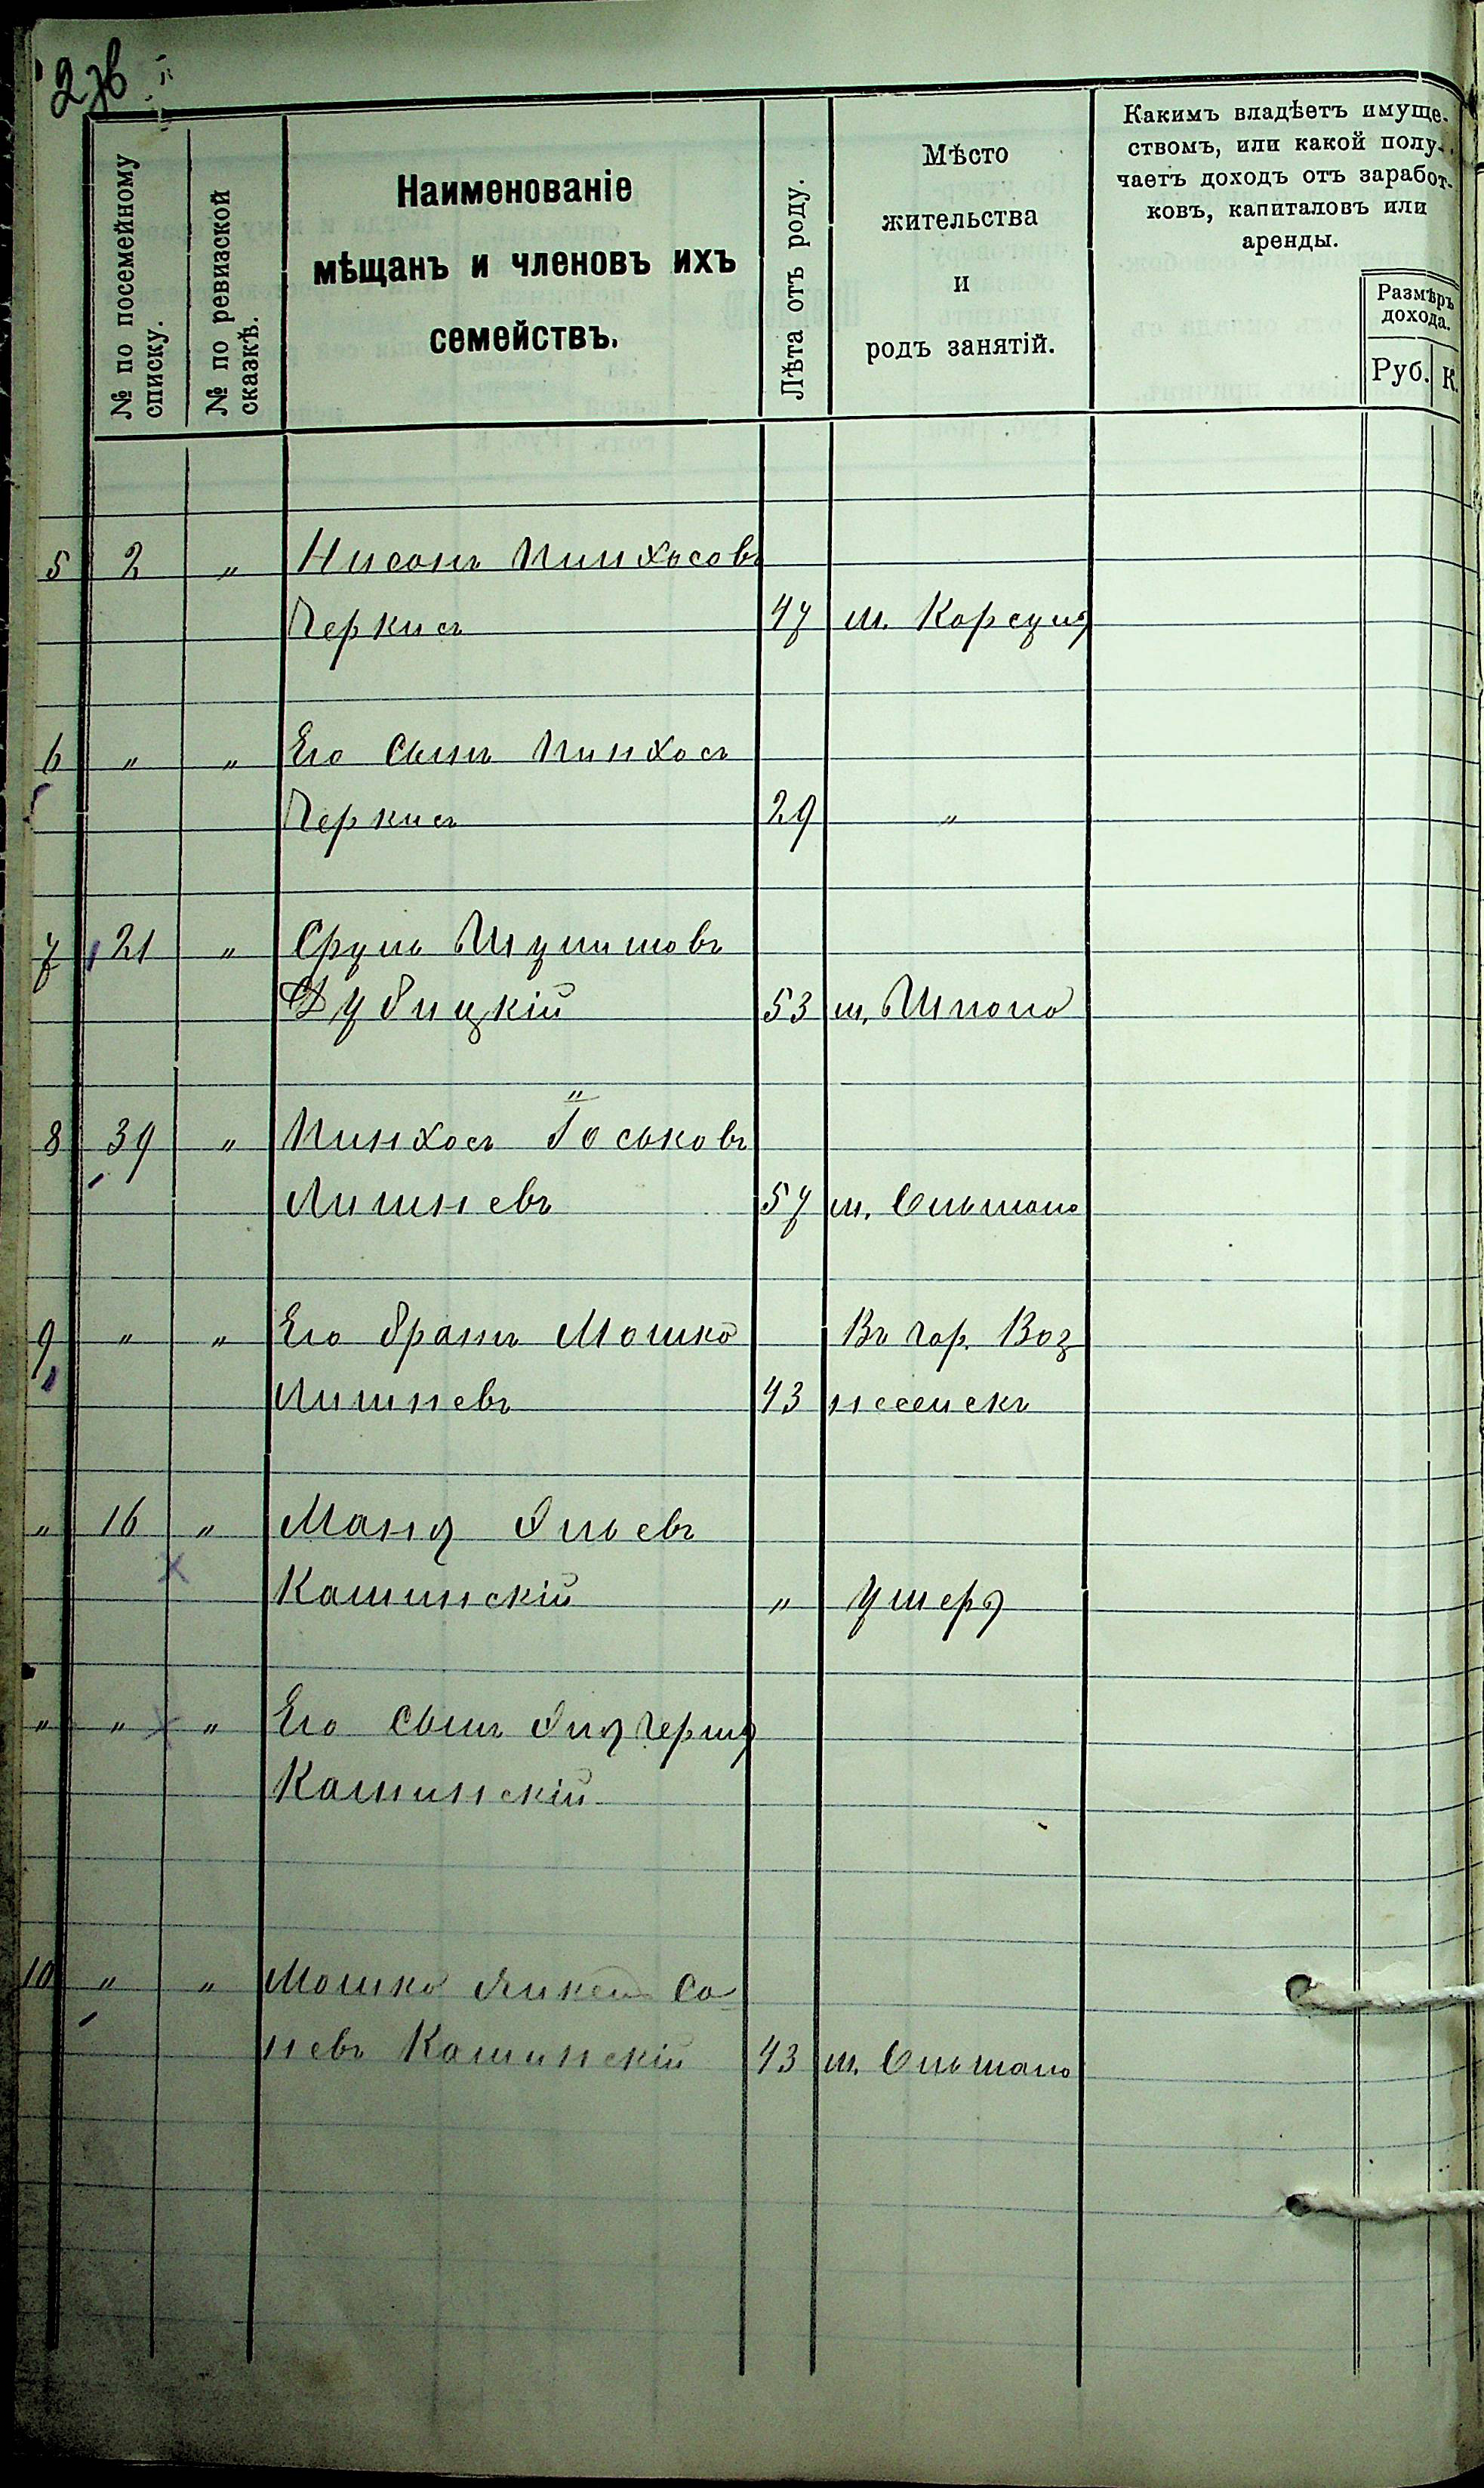 2 зв
№ по посемейному
списку.
№ по ревизской
сказкѣ.
Наименованіе
мѣщанъ и членовъ ихъ
семействъ.
Лѣта отъ роду.
Мѣсто
жительства
и
родъ занятій.
Какимъ владѣетъ имуще-
ствомъ, или какой полу-
чаетъ доходъ отъ заработ-
ковъ, капиталовъ или
аренды.
Размѣръ
дохода.
Руб. К.
5 2 " Нисонъ Пинхосовъ
Перкисъ 47 м. Корсунъ
6 " " Его сынъ Пинхосъ
Перкисъ 29 "
7 21 " Сруль
Дубицкій 53 м. Шпола
8 39 " Пинхосъ Іоськовъ
Лишневъ 57 м. Ольшана
9 " " Его братъ Мошко Въ гор. Воз
Лишневъ 43 несенскъ
" 16 "
Камин­скій " умеръ
" " " Его сынъ
Каминскій
10 " " Мошко
Каминскій 43 м. Ольшана